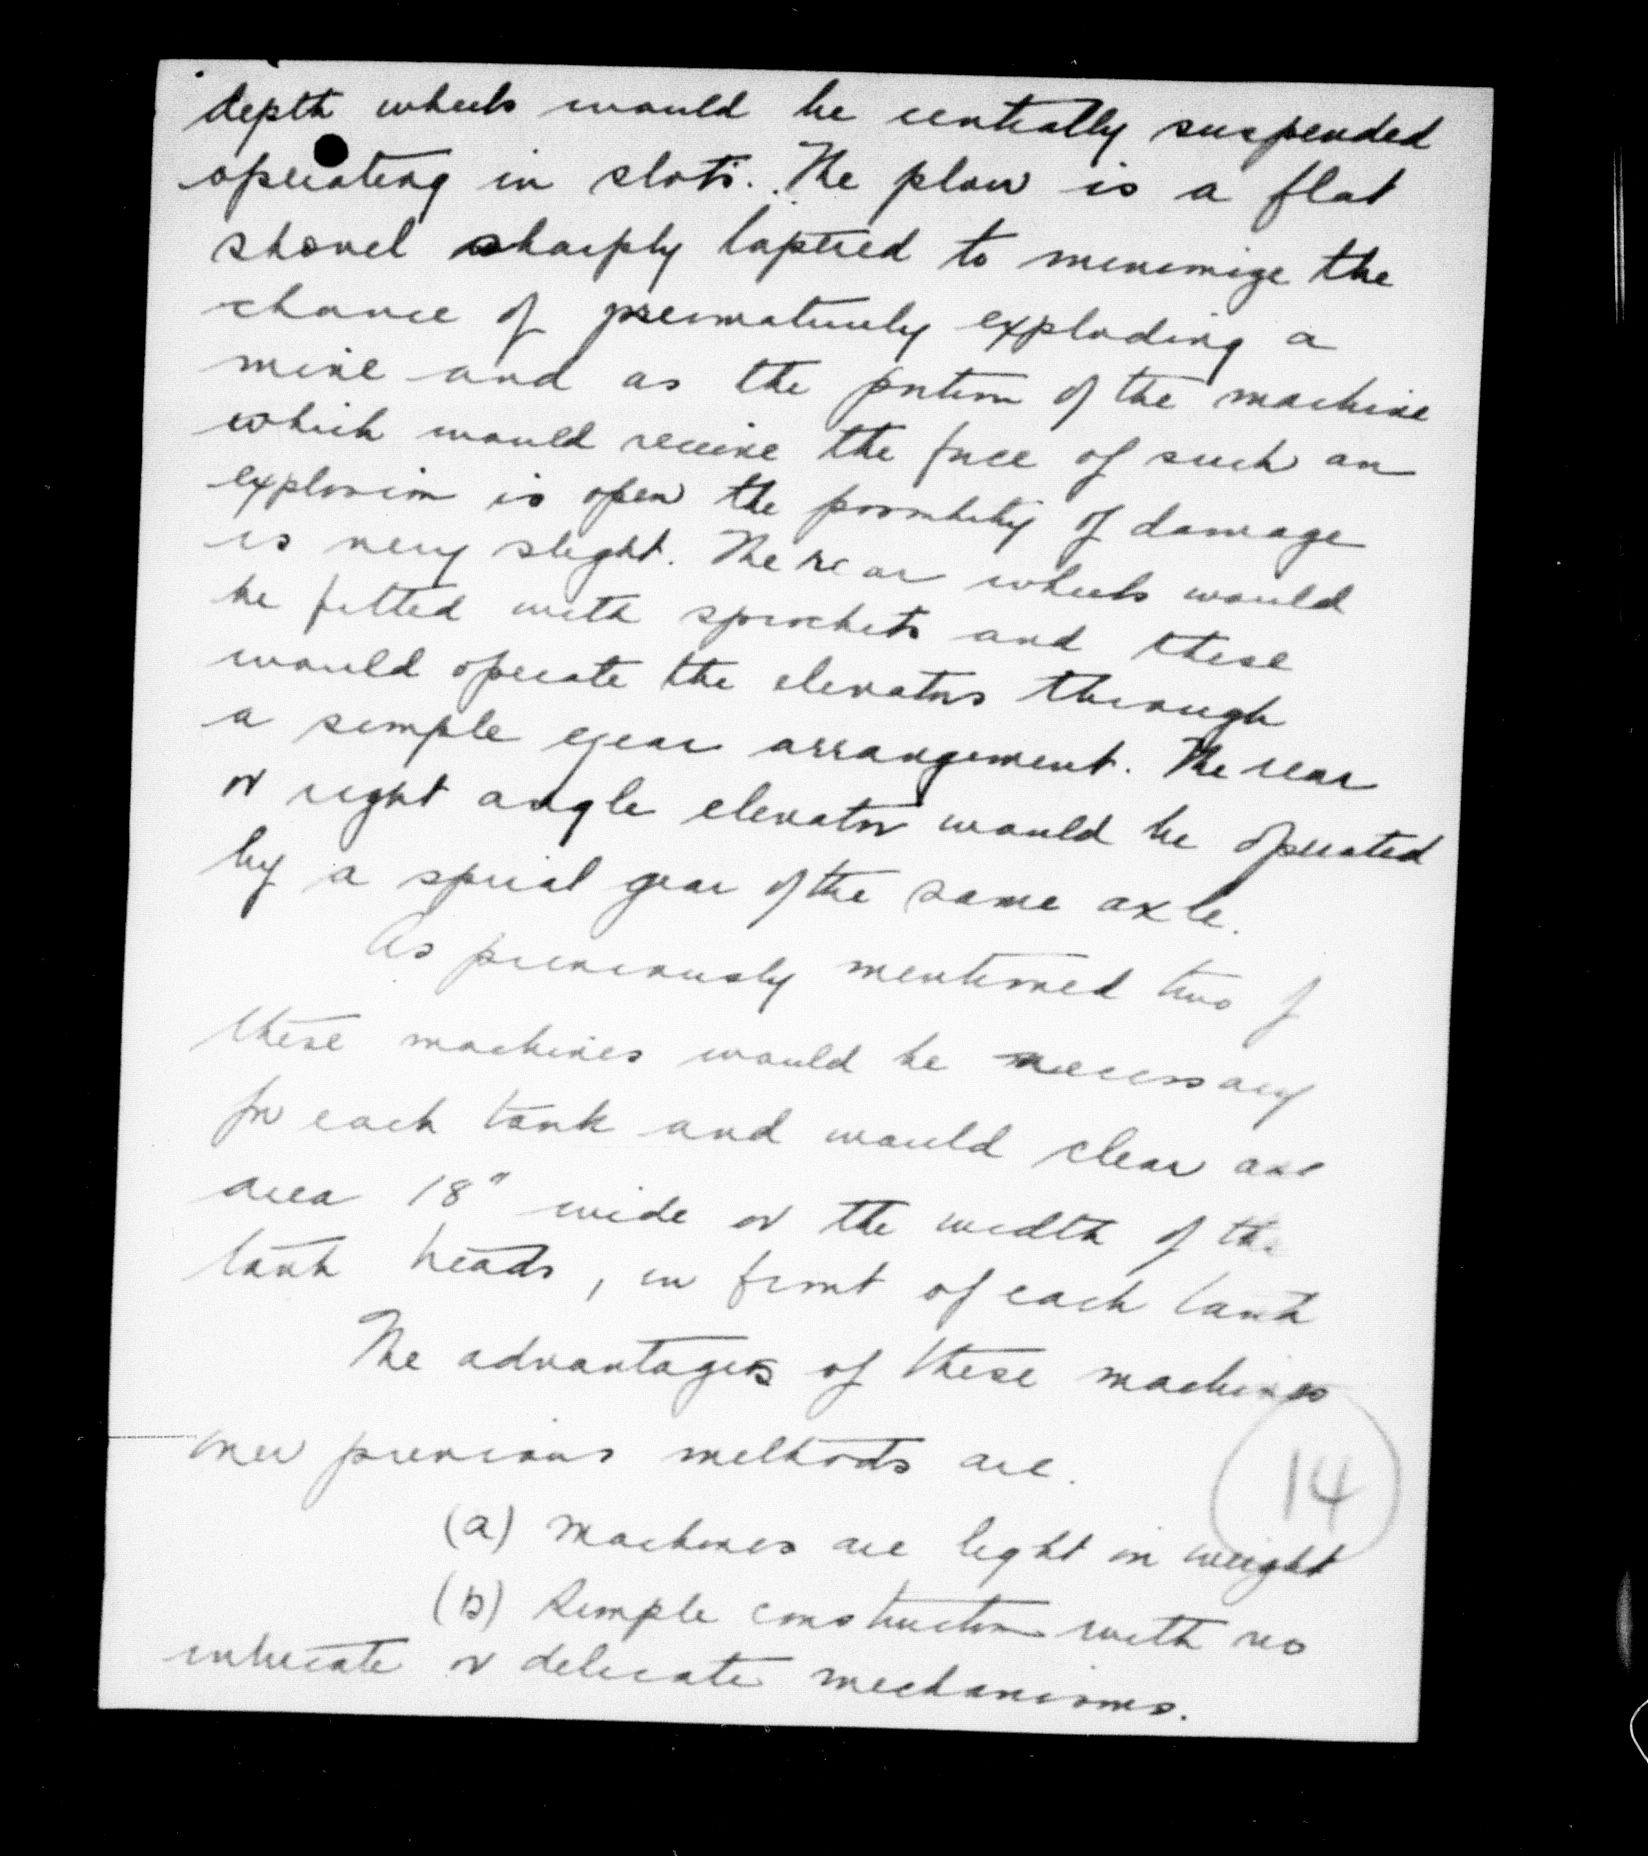 depth wheels would be centrally suspended
operating in slots. The plow is a flat
shovel sharply tapered to minimize the
chance of prematurely exploding a
mine and as the portion of the machine
which would receive the force of such an
explosion is open the possibility of damage
is very slight. The rear wheels would
be fitted with sprockets and these
would operate the elevators through
a simple gear arrangement. The rear
or right angle elevator would be operated
by a spiral gear of the same axle.
As previously mentioned two of
these machines would be necessary
for each tank and would clear an
area 18" wide or the width of the
tank treads, in front of each tank
The advantages of these machines
over previous methods are.
14
(a) Machines are light in weight
(b) Simple construction with no
intricate or delicate mechanisms.